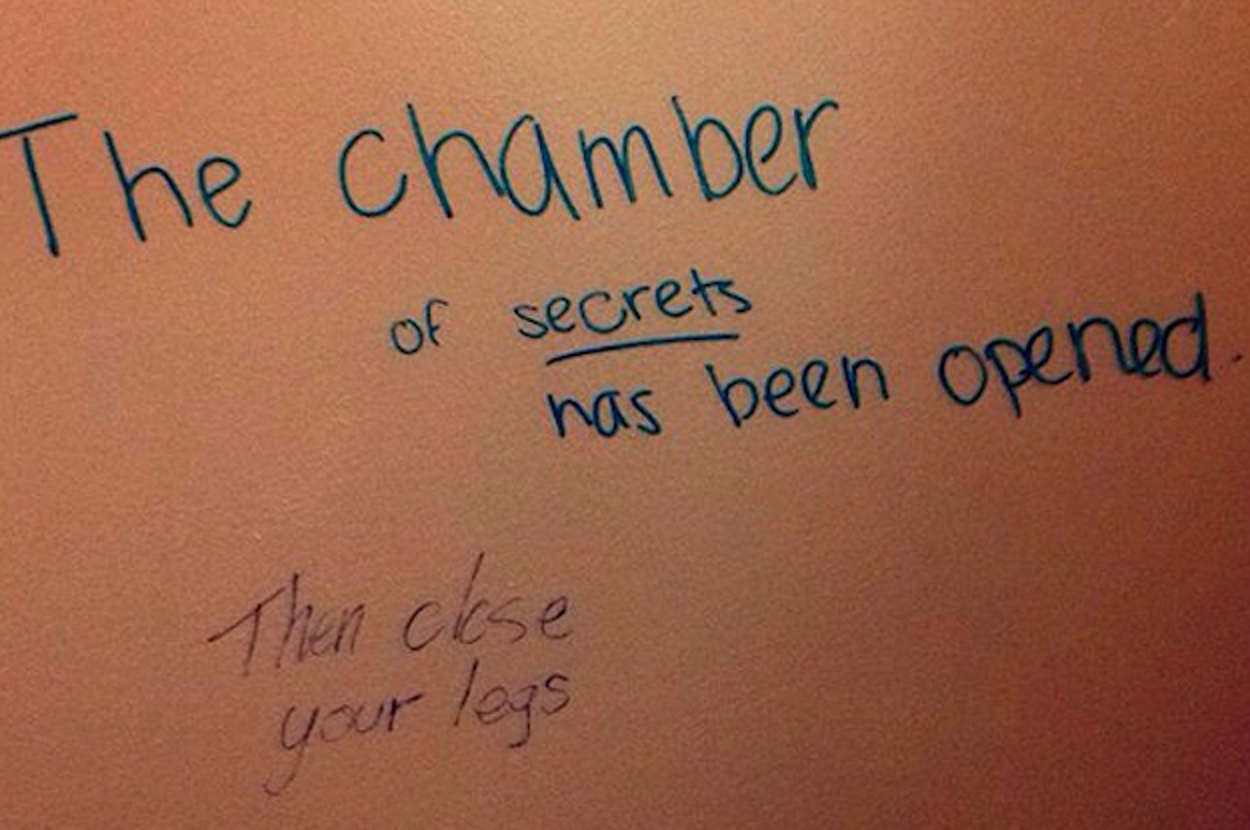 The chamber
of secrets
has been opened.
Then close
your legs